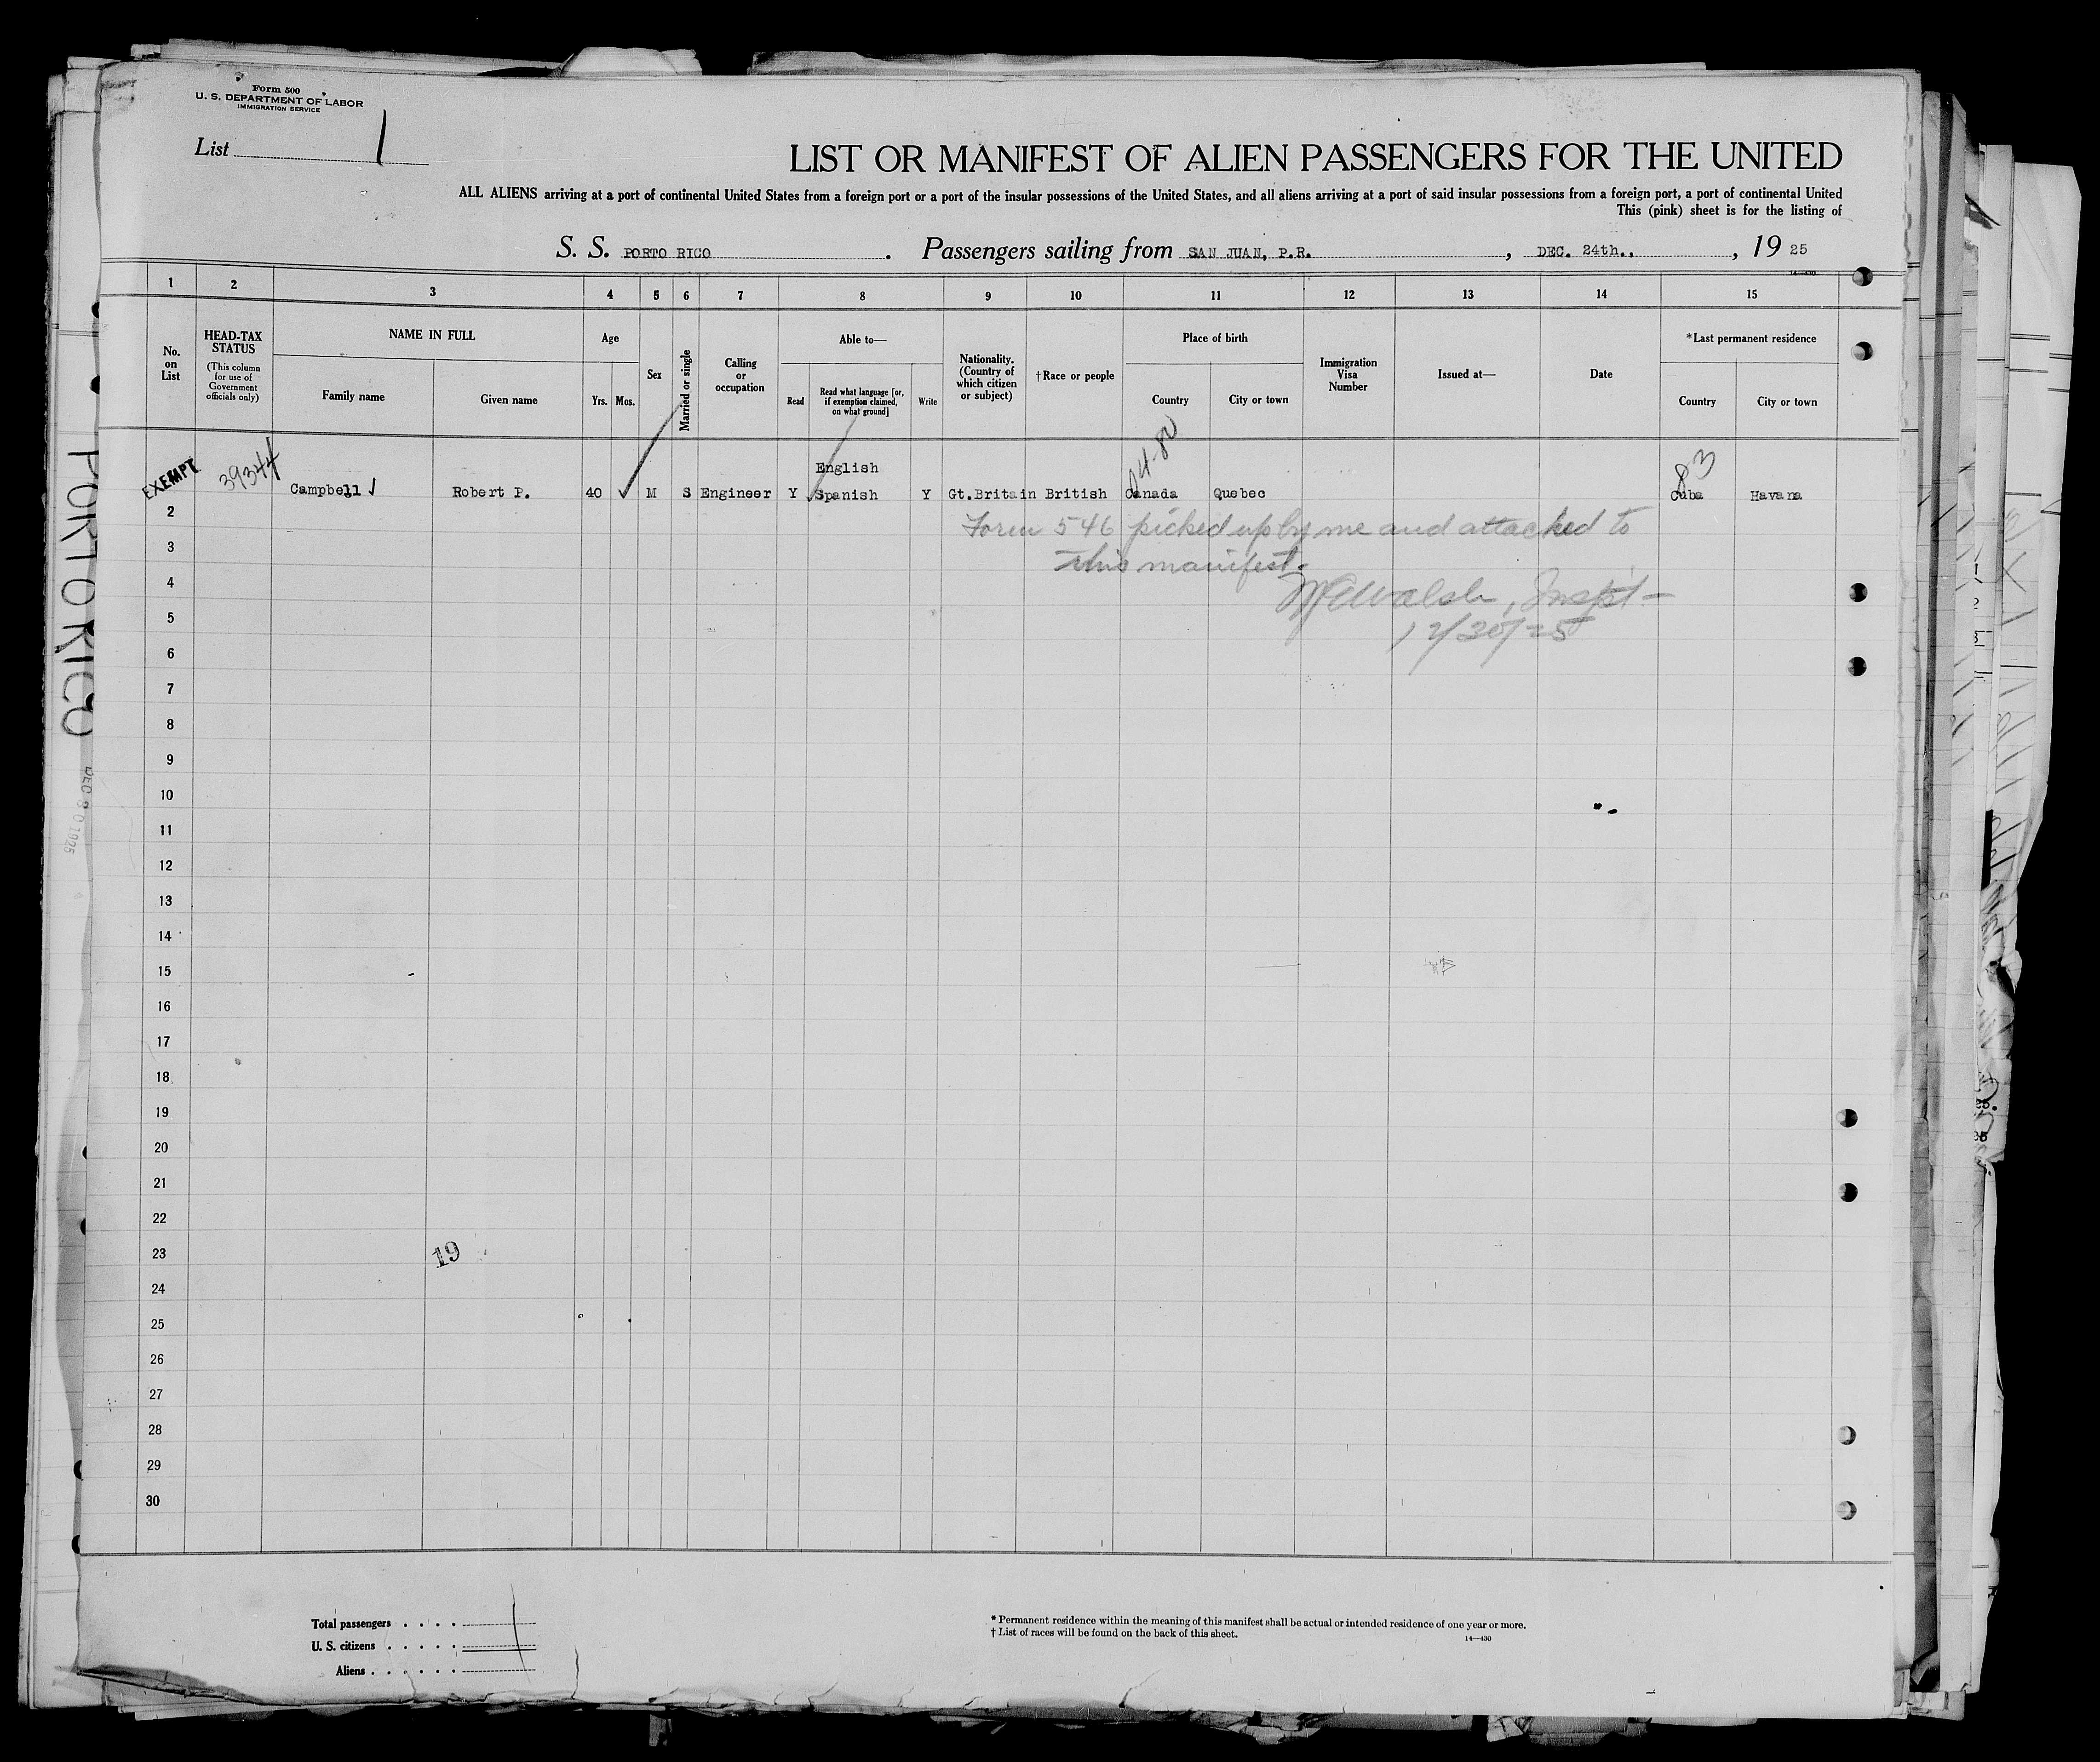 Form 500
U. S. DEPARTMENT OF LABOR
IMMIGRATION SERVICE
List 1
LIST OR MANIFEST OF ALIEN PASSENGERS FOR THE UNITED
ALL ALIENS arriving at a port of continental United States from a foreign port or a port of the insular possessions of the United States, and all aliens arriving at a port of said insular possessions from a foreign port, a port of continental United
This (pink) sheet is for the listing of
S. S. PORTO RICO . Passengers sailing from SAN JUAN, P.R. , DEC. 24th., , 19 25
14—430
1 2 3 4 5 6 7 8 9 10 11 12 13 14 15
No. on List
HEAD-TAX STATUS
(This column for use of Government officials only)
NAME IN FULL
Family name
Given name
Age
Yrs. Mos.
Sex
Married or single
Calling or occupation
Able to—
Read
Read what language [or, if exemption claimed, on what ground]
Write
Nationality. (Country of which citizen or subject)
†Race or people
Place of birth
Country
City or town
Immigration Visa Number
Issued at—
Date
*Last permanent residence
Country
City or town
EXEMPT 39344 Campbell Robert P. 40 M S Engineer Y English Spanish Y Gt.Britain British Canada Quebec Cuba Havana
83
2
Form 546 picked up by me and attached to
3
this manifest.
4
Walsh, Inspt
5
12/30/25
6
7
8
9
10
11
12
13
14
15
16
17
18
19
20
21
22
23
19
24
25
26
27
28
29
30
Total passengers 1
U. S. citizens
Aliens
* Permanent residence within the meaning of this manifest shall be actual or intended residence of one year or more.
† List of races will be found on the back of this sheet.
14—430
PORTO RICO
DEC 30 1925